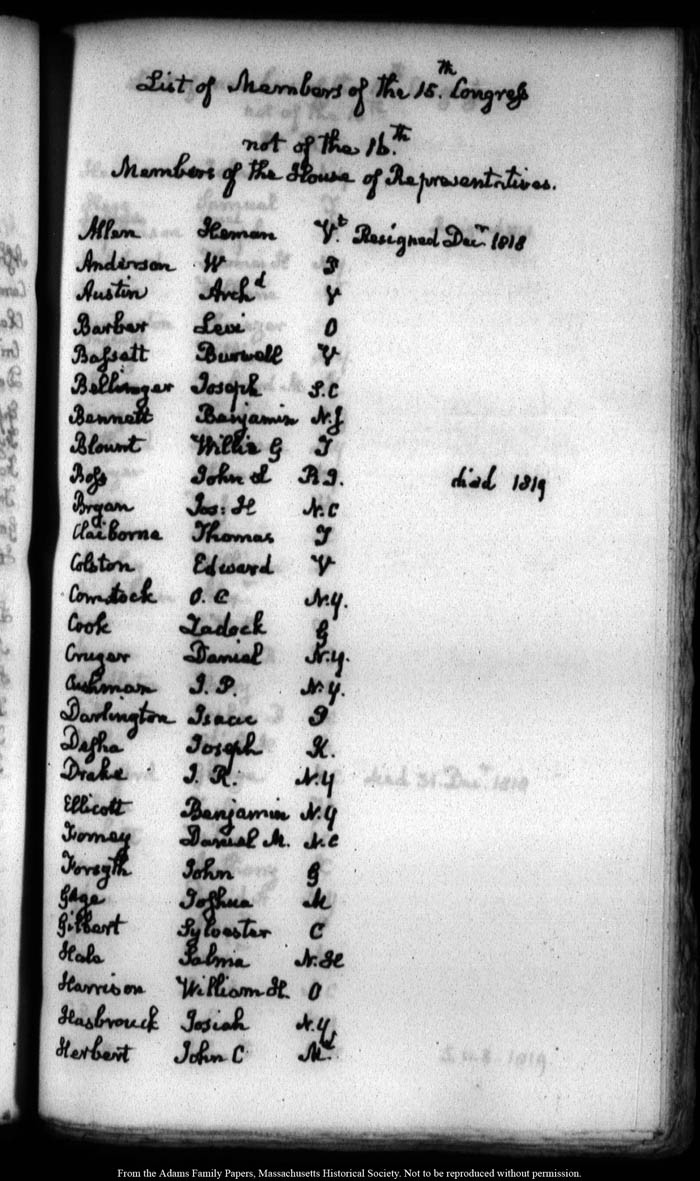 List of Members of the 15.th Congress
not of the 16.th
Members of the House of Representatives.
Allen Heman Vt. Resigned Decr. 1818
Anderson W P
Austin Archd V
Barber Levi O
Bassett Burwell V
Bellinger Joseph S.C
Bennett Benjamin N.J
Blount Willie G T
Boss John L R I. died 1819
Bryan Jos: H N.C
Claiborne Thomas T
Colston Edward V
Comstock O. C N.Y.
Cook Zadock G
Cruger Daniel N.Y.
Cushman J. P. N.Y.
Darlington Isaac P
Desha Joseph K.
Drake J. R. N.Y
Ellicott Benjamin N.Y
Forney Daniel M. N.C
Forsyth John G
Gage Joshua M
Gilbert Sylvester C
Hale Salma N.H
Harrison William H. O
Hasbrouck Josiah N.Y.
Herbert John C Md
From the Adams Family Papers, Massachusetts Historical Society. Not to be reproduced without permission.